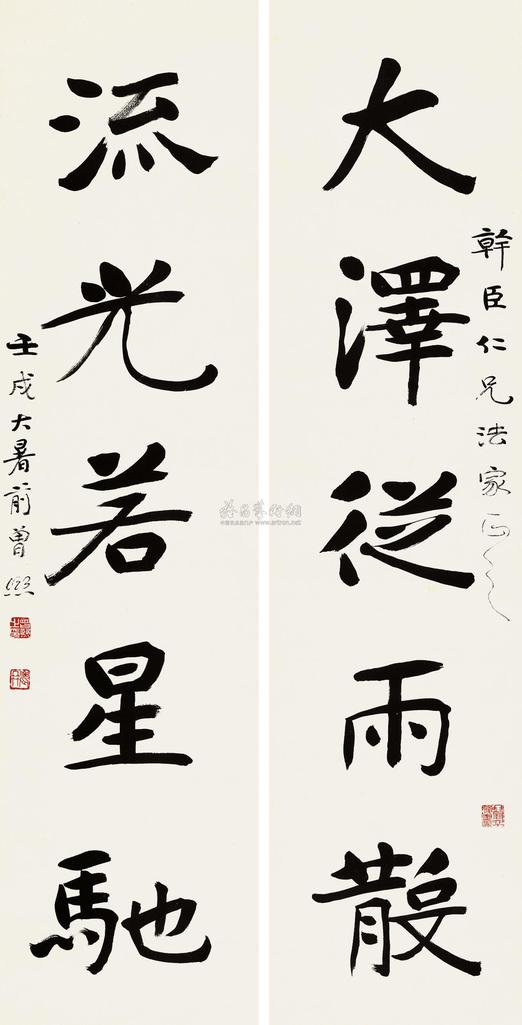 大澤從雨散
幹臣仁兄法家正之
流光若星馳
壬戌大暑前曾熙
www.artron.net